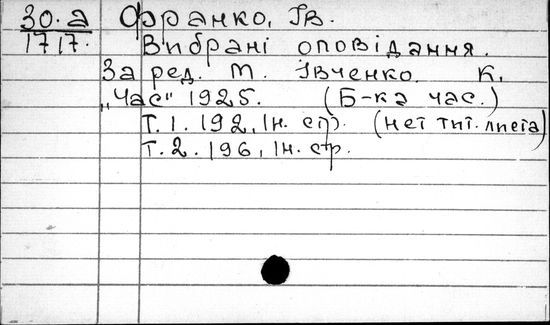 30.а Франко, Ів.
1717. Вибрані оповідання.
За ред. М. Івченко. К.
„Час" 1925. (Б-ка час.)
Т. 1. 192, Ін. стр. (неї тит. листа)
Т. 2. 196, Ін. стр.